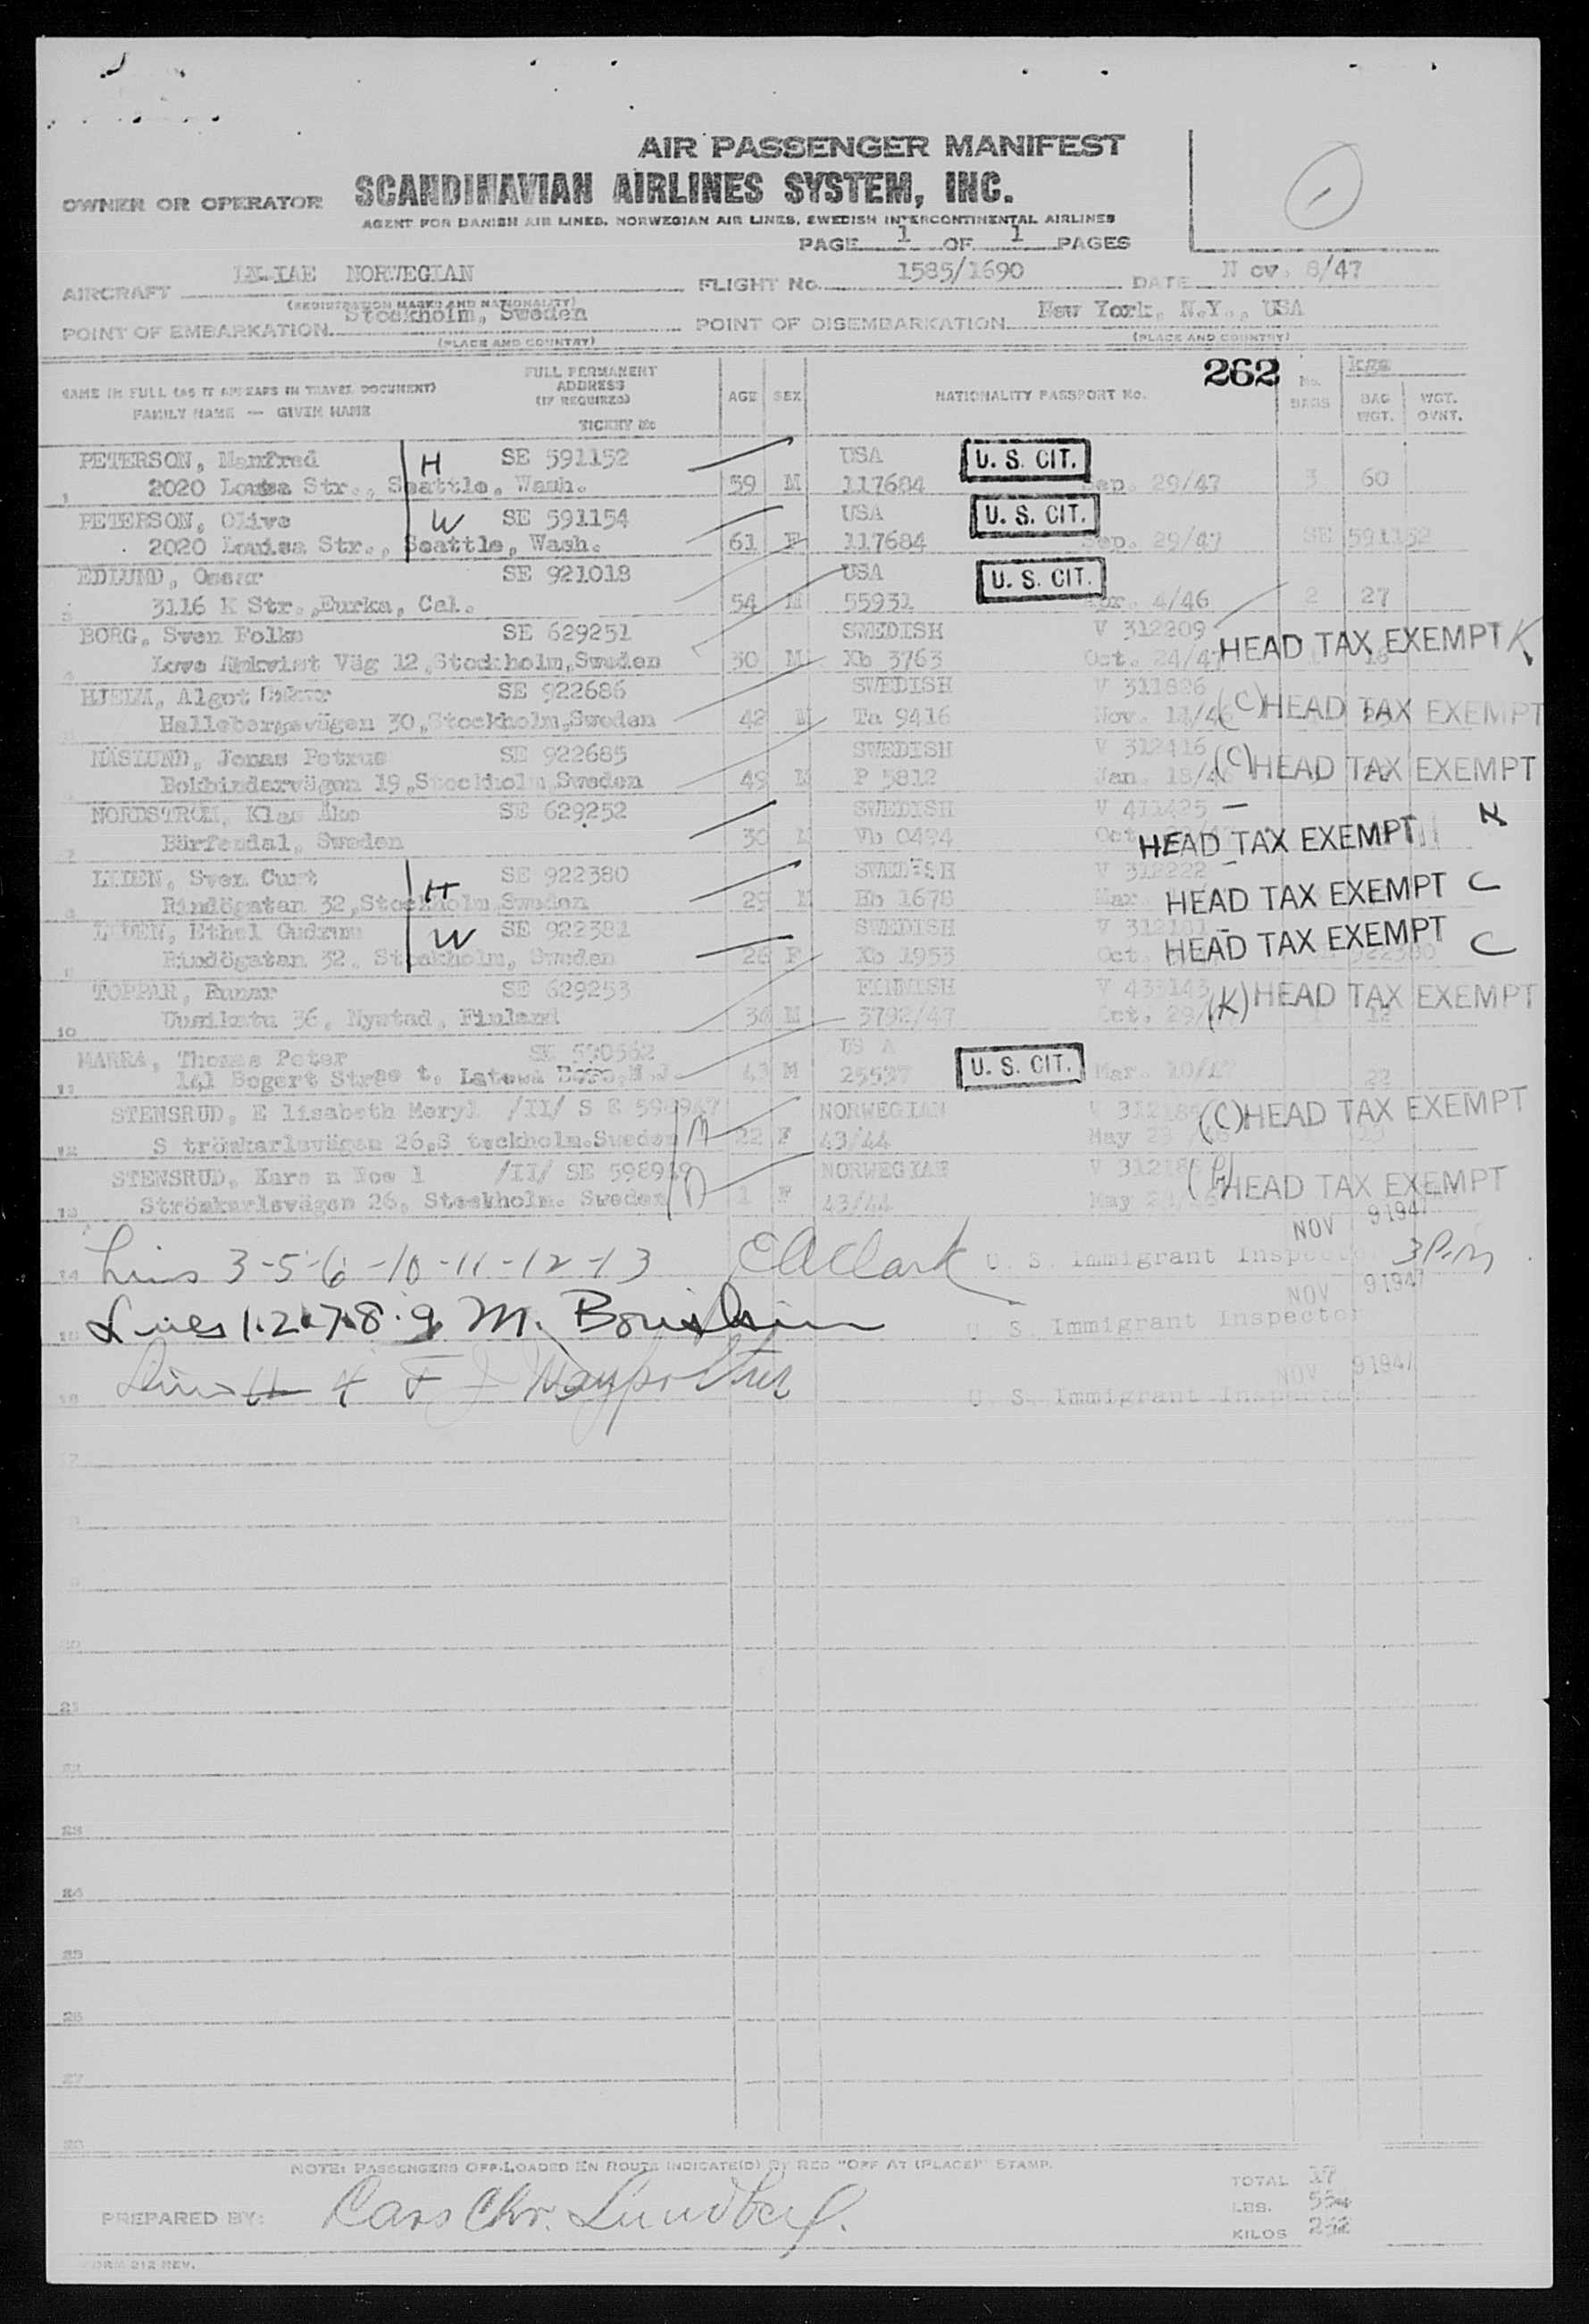 AIR PASSENGER MANIFEST
OWNER OR OPERATOR SCANDINAVIAN AIRLINES SYSTEM, INC.
AGENT FOR DANISH AIR LINES, NORWEGIAN AIR LINES, SWEDISH INTERCONTINENTAL AIRLINES
PAGE 1 OF 1 PAGES
AIRCRAFT NORWEGIAN FLIGHT No. 1585/1690 DATE N ov. 8/47
(REGISTRATION MARKS AND NATIONALITY)
POINT OF EMBARKATION Stockholm, Sweden POINT OF DISEMBARKATION New York, N.Y., USA
(PLACE AND COUNTRY) (PLACE AND COUNTRY)
262
NAME IN FULL (AS IT APPEARS IN TRAVEL DOCUMENT) FULL PERMANENT ADDRESS (IF REQUIRED) AGE SEX NATIONALITY PASSPORT No. No. BAGS BAG WGT. WGT. OVNT.
FAMILY NAME — GIVEN NAME TICKET No
PETERSON, Manfred H SE 591152 USA U. S. CIT.
1 2020 Louisa Str., Seattle, Wash. 59 M 117684 Sep. 29/47 3 60
PETERSON, Olive W SE 591154 USA U. S. CIT.
2020 Louisa Str., Seattle, Wash. 61 F 117684 Sep. 29/47 SE 591152
EDLUND, Oscar SE 921018 USA U. S. CIT.
3 3116 K Str., Eurka, Cal. 54 M 55931 Apr. 4/46 2 27
BORG, Sven Folke SE 629251 SWEDISH V 312209
Väg 12, Stockholm, Sweden 30 M Xb 3763 Oct. 24/47 HEAD TAX EXEMPT K
HJELM, Algot SE 922686 SWEDISH V 311826
Hallebergsvägen 30, Stockholm, Sweden 42 M Ta 9416 Nov. 14/46 (C) HEAD TAX EXEMPT
NÄSLUND, Jonas Petrus SE 922685 SWEDISH V 312416
Bokbindarvägen 19, Stockholm, Sweden 49 M P 5812 Jan. 18/4 (C) HEAD TAX EXEMPT
NORDSTROM, Klas Åke SE 629252 SWEDISH V 411425
7 Bärfendal, Sweden 30 M Vb 0494 Oct. HEAD TAX EXEMPT K
LIDEN, Sven Curt H SE 922380 SWEDISH V 312222
8 Rindögatan 32, Stockholm, Sweden 29 M Bb 1678 Mar. HEAD TAX EXEMPT C
LIDEN, Ethel Gudrun W SE 922381 SWEDISH V 312181
9 Rindögatan 32, Stockholm, Sweden 26 F Xb 1953 Oct. HEAD TAX EXEMPT C
TOPPAR, Runar SE 629253 FINNISH V 433143
10 Uusikatu 36, Nystad, Finland 34 M 3792/47 Oct. 29/ (K) HEAD TAX EXEMPT 12
MARRA, Thomas Peter SE 590562 US A
11 141 Bogert Stree t, Boro, N.J. 43 M 25537 U. S. CIT. Mar. 10/47 22
STENSRUD, E lisabeth Meryl /II/ S E 598947 NORWEGIAN V 312186
12 S trömkarlsvägen 26, S tockholm. Sweden M 22 F 43/44 May 23 (C) HEAD TAX EXEMPT
STENSRUD, Kare n Noe l /II/ SE 598949 NORWEGIAN V 312185
13 Strömkarlsvägen 26, Stockholm. Sweden D 1 F 43/44 May 23/46 HEAD TAX EXEMPT
NOV 9 1947
14 Lines 3-5-6-10-11-12-13 EA Clark U. S. Immigrant Inspector 3 P.M.
NOV 9 1947
15 Lines 1.2.7.8.9 M. U. S. Immigrant Inspector
NOV 9 1947
16 Line 4 F J U. S. Immigrant Inspector
21
23
24
25
26
27
NOTE: PASSENGERS OFF-LOADED EN ROUTE INDICATE(D) BY RED "OFF AT (PLACE)" STAMP.
TOTAL 17
PREPARED BY: Lars Chr. Lundberg. LBS.
KILOS 252
FORM 212 REV.